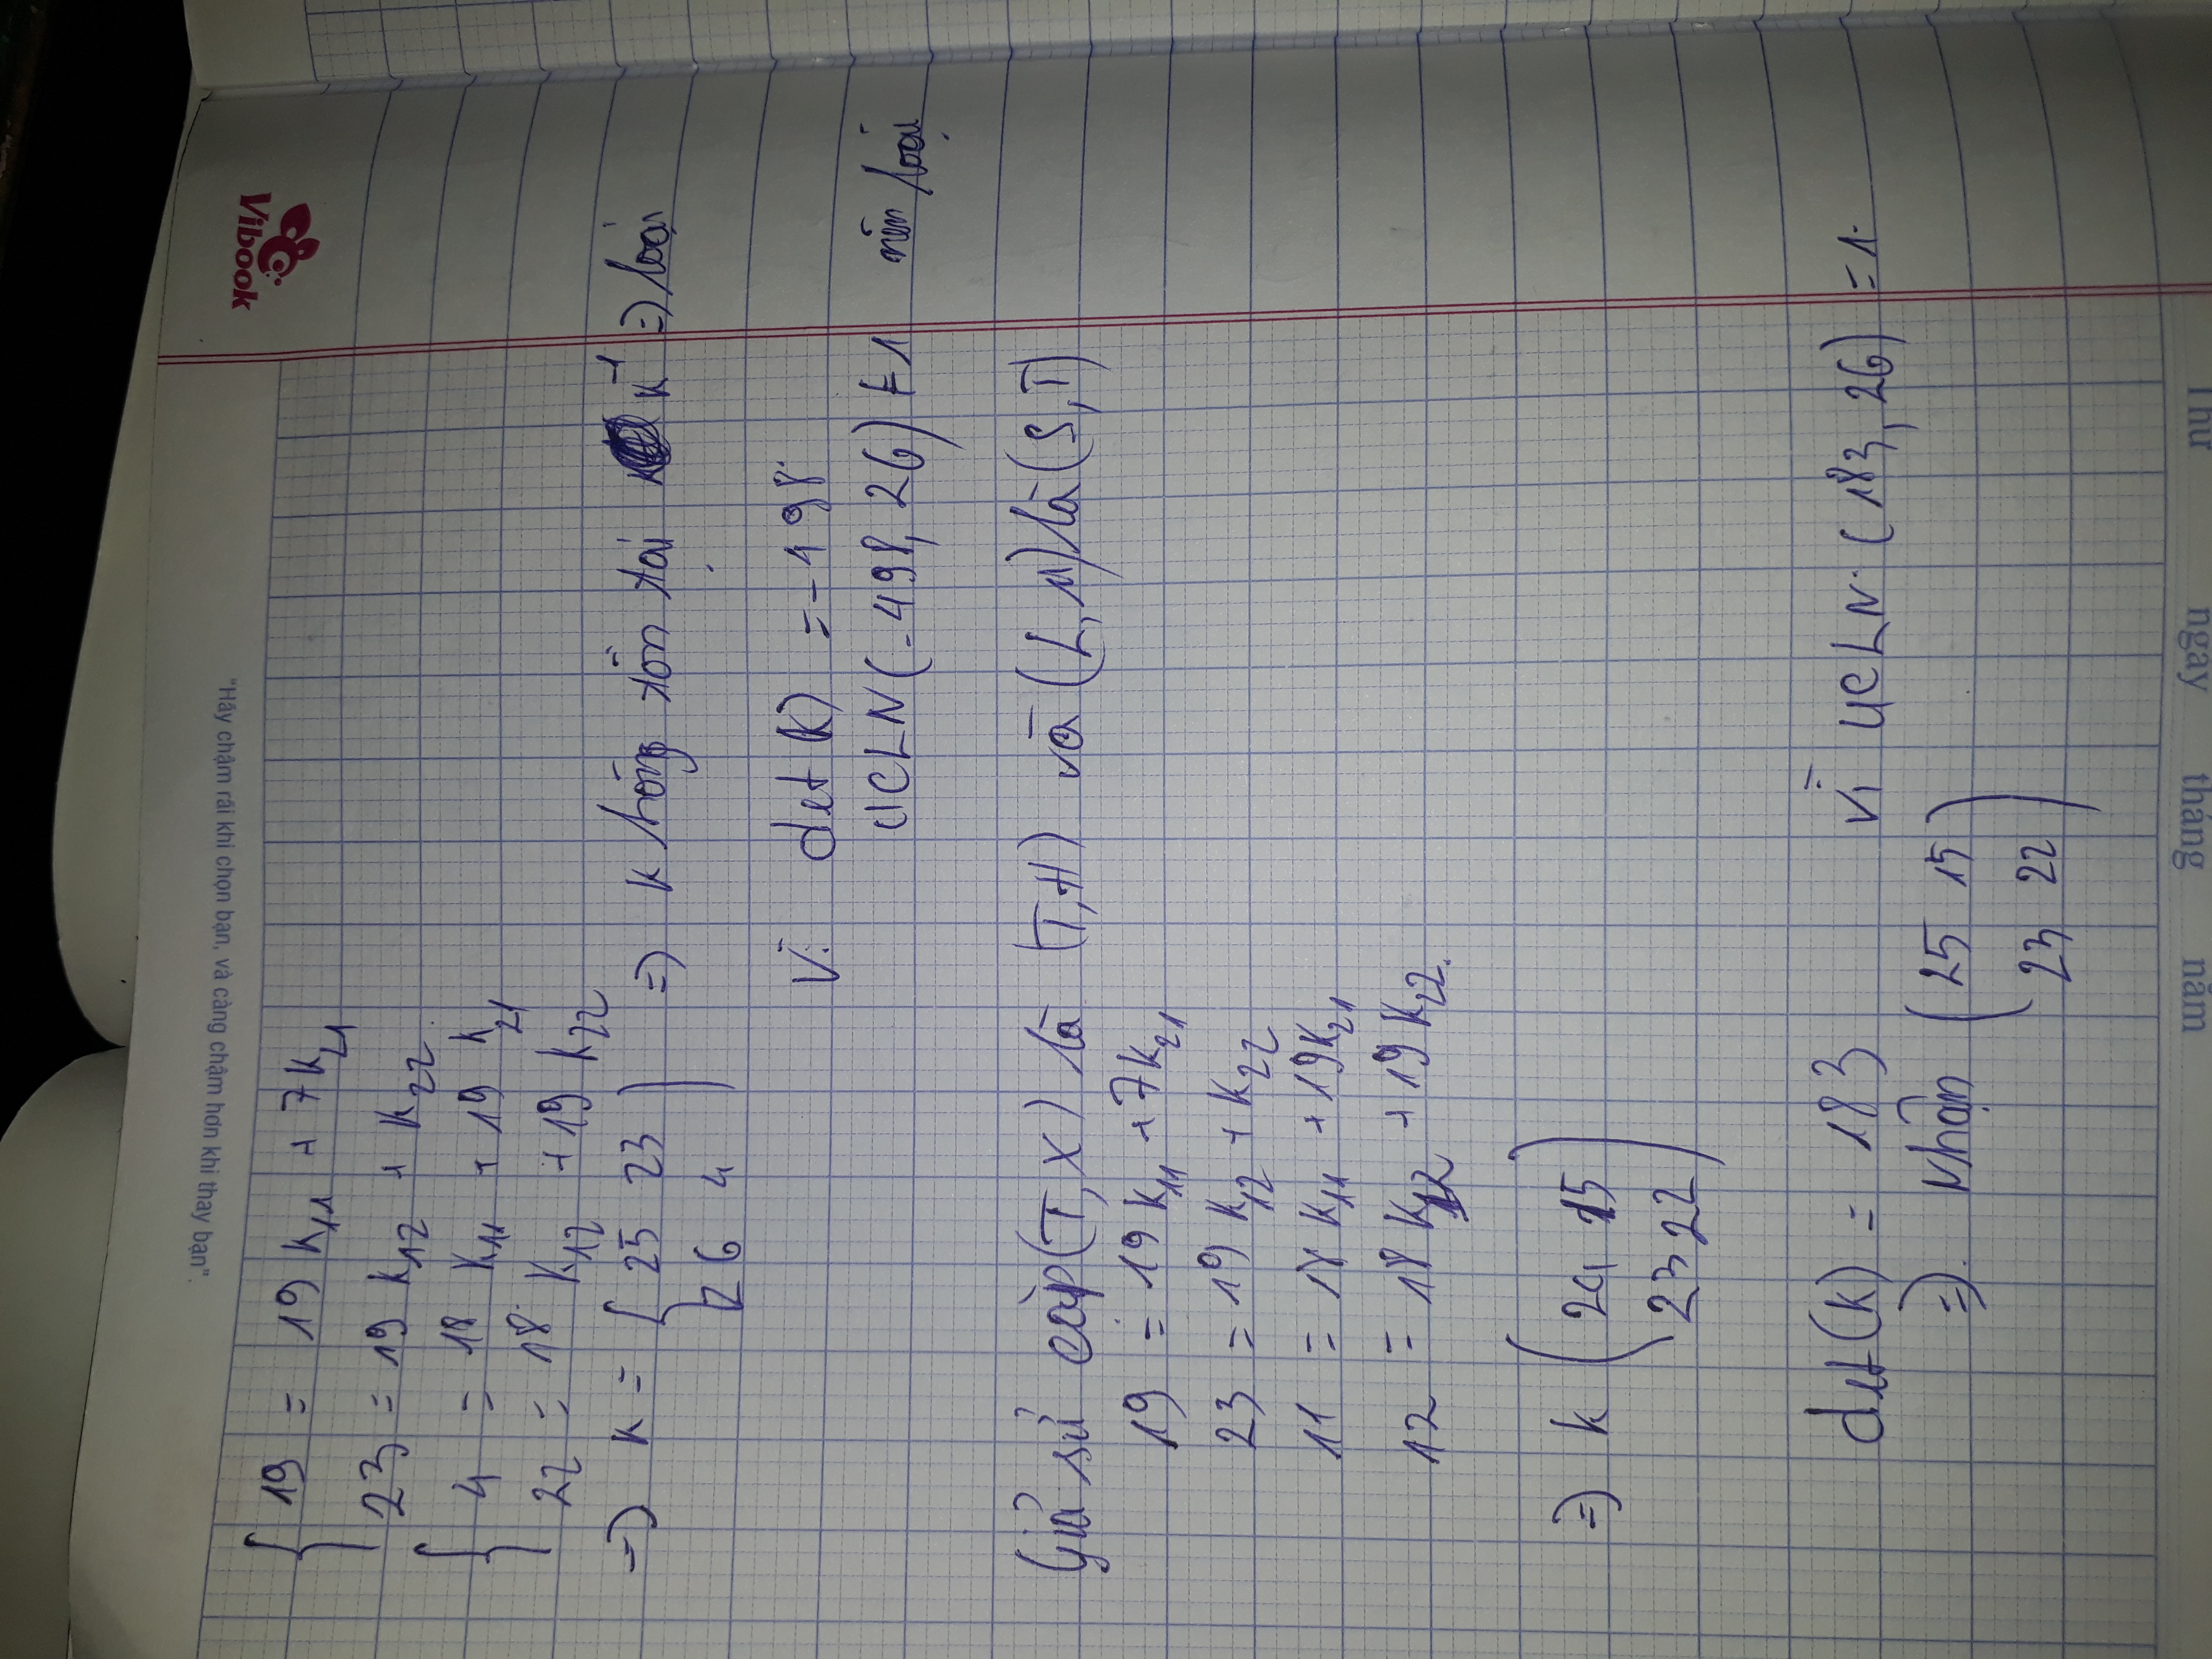 "Hãy chậm rãi khi chọn bạn, và càng chậm hơn khi thay bạn".
Vibook
19 = 19 K₁₁ + 7K₂₁
23 = 19 K₁₂ + K₂₂
4 = 18 K₁₁ + 19 K₂₁
22 = 18 K₁₂ + 19 K₂₂
=> K = [25 23 => K hông tồn tại K⁻¹ => loại
26 4)
Vì det(K) = -198
UCLN(-498, 26) ≠ 1 nên loại
Giả sử cặp (T,X) là (T,H) và (L,M) là (S,T)
19 = 19 K₁₁ + 7K₂₁
23 = 19 K₁₂ + K₂₂
11 = 18 K₁₁ + 19K₂₁
12 = 18 K₁₂ + 19 K₂₂.
=> k ( 15
23 22 )
det(K) = 183 Vì UCLN (183, 26) = 1.
=> Nhận (25 15
23 22)
Thứ ngày tháng năm